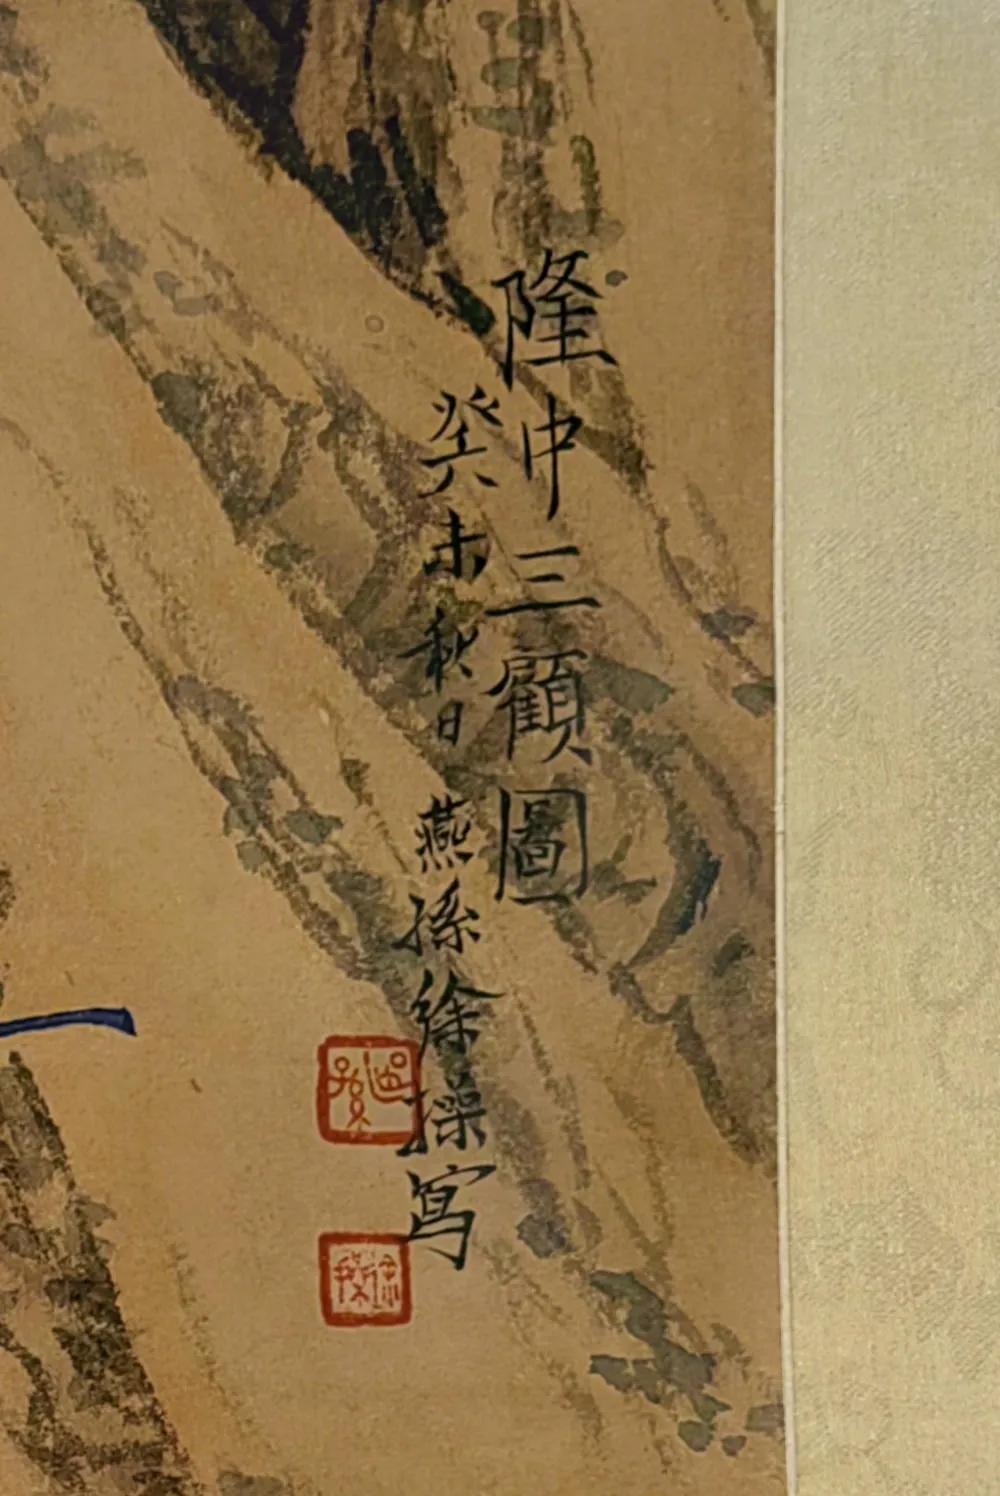 隆中三顧圖
癸未秋日 燕孫徐操寫
徐操